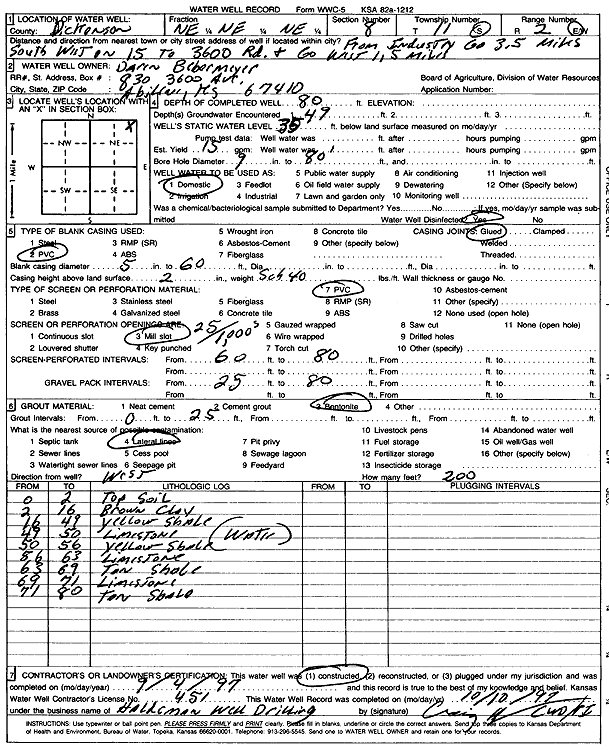 WATER WELL RECORD Form WWC-5 KSA 82a-1212
1 LOCATION OF WATER WELL: Fraction Section Number Township Number Range Number
County: Dickinson NE ¼ NE ¼ NE ¼ 8 T 11 S R 2 E/W
Distance and direction from nearest town or city street address of well if located within city? From Industry Go 3.5 Miles
South West on 15 to 3600 Rd. & Go West 1.5 Miles
2 WATER WELL OWNER:
RR#, St. Address, Box #: 830 3600 Ave. Board of Agriculture, Division of Water Resources
City, State, ZIP Code : Abilene, Ks 67410 Application Number:
3 LOCATE WELL'S LOCATION WITH AN "X" IN SECTION BOX:
N
X
NW NE
W E
SW SE
S
1 Mile
4 DEPTH OF COMPLETED WELL 80 ft. ELEVATION:
Depth(s) Groundwater Encountered 1. 49 ft. 2. ft. 3. ft.
WELL'S STATIC WATER LEVEL 35 ft. below land surface measured on mo/day/yr
Pump test data: Well water was ft. after hours pumping gpm
Est. Yield 15 gpm: Well water was ft. after hours pumping gpm
Bore Hole Diameter 9 in. to 80 ft., and in. to ft.
WELL WATER TO BE USED AS: 5 Public water supply 8 Air conditioning 11 Injection well
1 Domestic 3 Feedlot 6 Oil field water supply 9 Dewatering 12 Other (Specify below)
2 Irrigation 4 Industrial 7 Lawn and garden only 10 Monitoring well
Was a chemical/bacteriological sample submitted to Department? Yes No ; If yes, mo/day/yr sample was sub-
mitted Water Well Disinfected? Yes No
5 TYPE OF BLANK CASING USED: 5 Wrought iron 8 Concrete tile CASING JOINTS: Glued Clamped
1 Steel 3 RMP (SR) 6 Asbestos-Cement 9 Other (specify below) Welded
2 PVC 4 ABS 7 Fiberglass Threaded.
Blank casing diameter 5 in. to 60 ft., Dia in. to ft., Dia in. to ft.
Casing height above land surface 2 in., weight Sch 40 lbs./ft. Wall thickness or gauge No.
TYPE OF SCREEN OR PERFORATION MATERIAL: 7 PVC 10 Asbestos-cement
1 Steel 3 Stainless steel 5 Fiberglass 8 RMP (SR) 11 Other (specify)
2 Brass 4 Galvanized steel 6 Concrete tile 9 ABS 12 None used (open hole)
SCREEN OR PERFORATION OPENINGS ARE: 25/1,000's 5 Gauzed wrapped 8 Saw cut 11 None (open hole)
1 Continuous slot 3 Mill slot 6 Wire wrapped 9 Drilled holes
2 Louvered shutter 4 Key punched 7 Torch cut 10 Other (specify)
SCREEN-PERFORATED INTERVALS: From 60 ft. to 80 ft., From ft. to ft.
From ft. to ft., From ft. to ft.
GRAVEL PACK INTERVALS: From 25 ft. to 80 ft., From ft. to ft.
From ft. to ft., From ft. to ft.
6 GROUT MATERIAL: 1 Neat cement 2 Cement grout 3 Bentonite 4 Other
Grout Intervals: From 0 ft. to 25 ft., From ft. to ft., From ft. to ft.
What is the nearest source of possible contamination: 10 Livestock pens 14 Abandoned water well
1 Septic tank 4 Lateral lines 7 Pit privy 11 Fuel storage 15 Oil well/Gas well
2 Sewer lines 5 Cess pool 8 Sewage lagoon 12 Fertilizer storage 16 Other (specify below)
3 Watertight sewer lines 6 Seepage pit 9 Feedyard 13 Insecticide storage
Direction from well? West How many feet? 200
FROM TO LITHOLOGIC LOG FROM TO PLUGGING INTERVALS
0 2 Top Soil
2 16 Brown Clay
16 49 Yellow Shale
49 50 Limestone (Water)
50 56 Yellow Shale
56 63 Limestone
63 69 Tan Shale
69 71 Limestone
71 80 Tan Shale
7 CONTRACTOR'S OR LANDOWNER'S CERTIFICATION: This water well was (1) constructed, (2) reconstructed, or (3) plugged under my jurisdiction and was
completed on (mo/day/year) 9/4/97 and this record is true to the best of my knowledge and belief. Kansas
Water Well Contractor's License No. 451 This Water Well Record was completed on (mo/day/yr) 10/10/97
under the business name of Well Drilling by (signature)
INSTRUCTIONS: Use typewriter or ball point pen. PLEASE PRESS FIRMLY and PRINT clearly. Please fill in blanks, underline or circle the correct answers. Send top three copies to Kansas Department
of Health and Environment, Bureau of Water, Topeka, Kansas 66620-0001. Telephone: 913-296-5545. Send one to WATER WELL OWNER and retain one for your records.